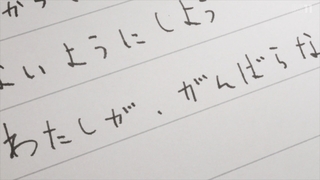 から
ないようにしよう
わたしが、がんばらな